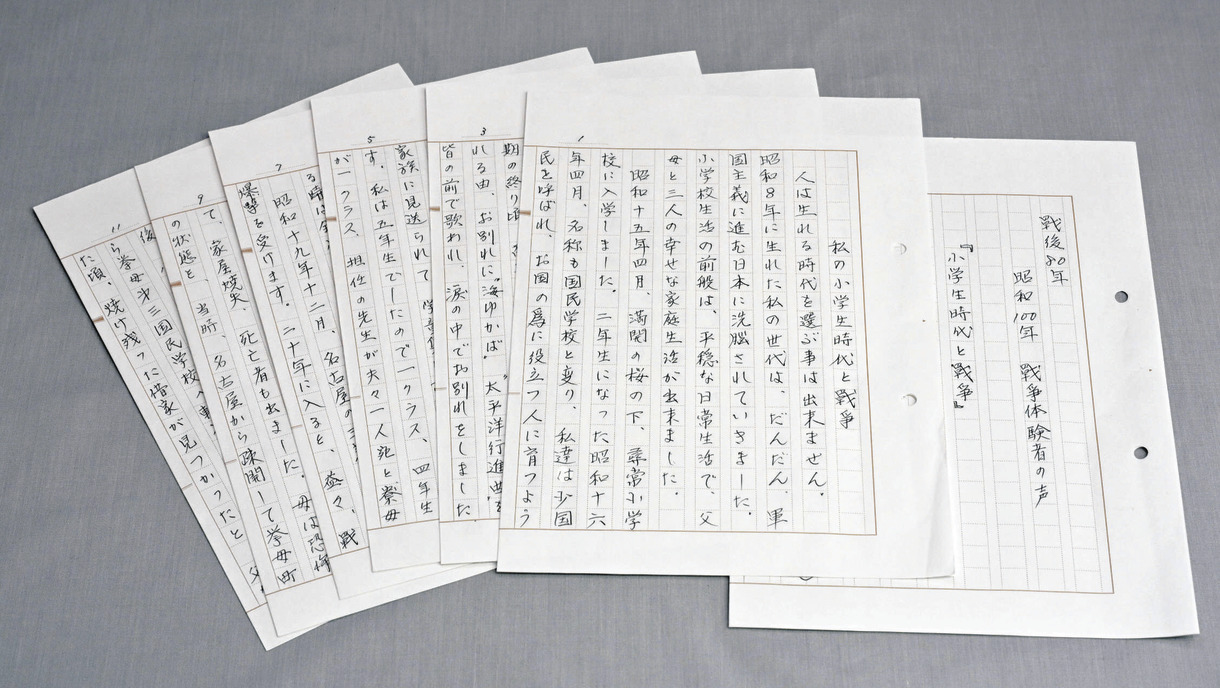 戦後80年
昭和100年 戦争体験者の声
『小学生時代と戦争』
1
私の小学生時代と戦争
人は生れる時代を選ぶ事は出来ません。
昭和8年に生れた私の世代は、だんだん、軍
国主義に進む日本に洗脳されていきました。
小学校生活の前般は、平穏な日常生活で、父
母と三人の幸せな家庭生活が出来ました。
昭和十五年四月、満開の桜の下、尋常小学
校に入学しました。二年生になった昭和十六
年四月、名称も国民学校と変り、私達は少国
民と呼ばれ、お国の為に役立つ人に育つよう
3
期の終り頃、
れる由、お別れに"海ゆかば""太平洋行進曲"を
皆の前で歌われ、涙の中でお別れをしました
5
家族に見送られて
す。私は五年生でしたので一クラス、四年生
が一クラス、担任の先生が夫々一人宛と寮母
7
る時は
昭和十九年十二月、名古屋の
爆撃を受けます。二十年に入ると、益々、戦
9
て、家屋焼失、死亡者も出ました。母は恐怖
の状態と、当時、名古屋から疎開して挙母町
11
後
ら挙母第三国民学校へ
た頃、焼け残った借家が見つかったと 父